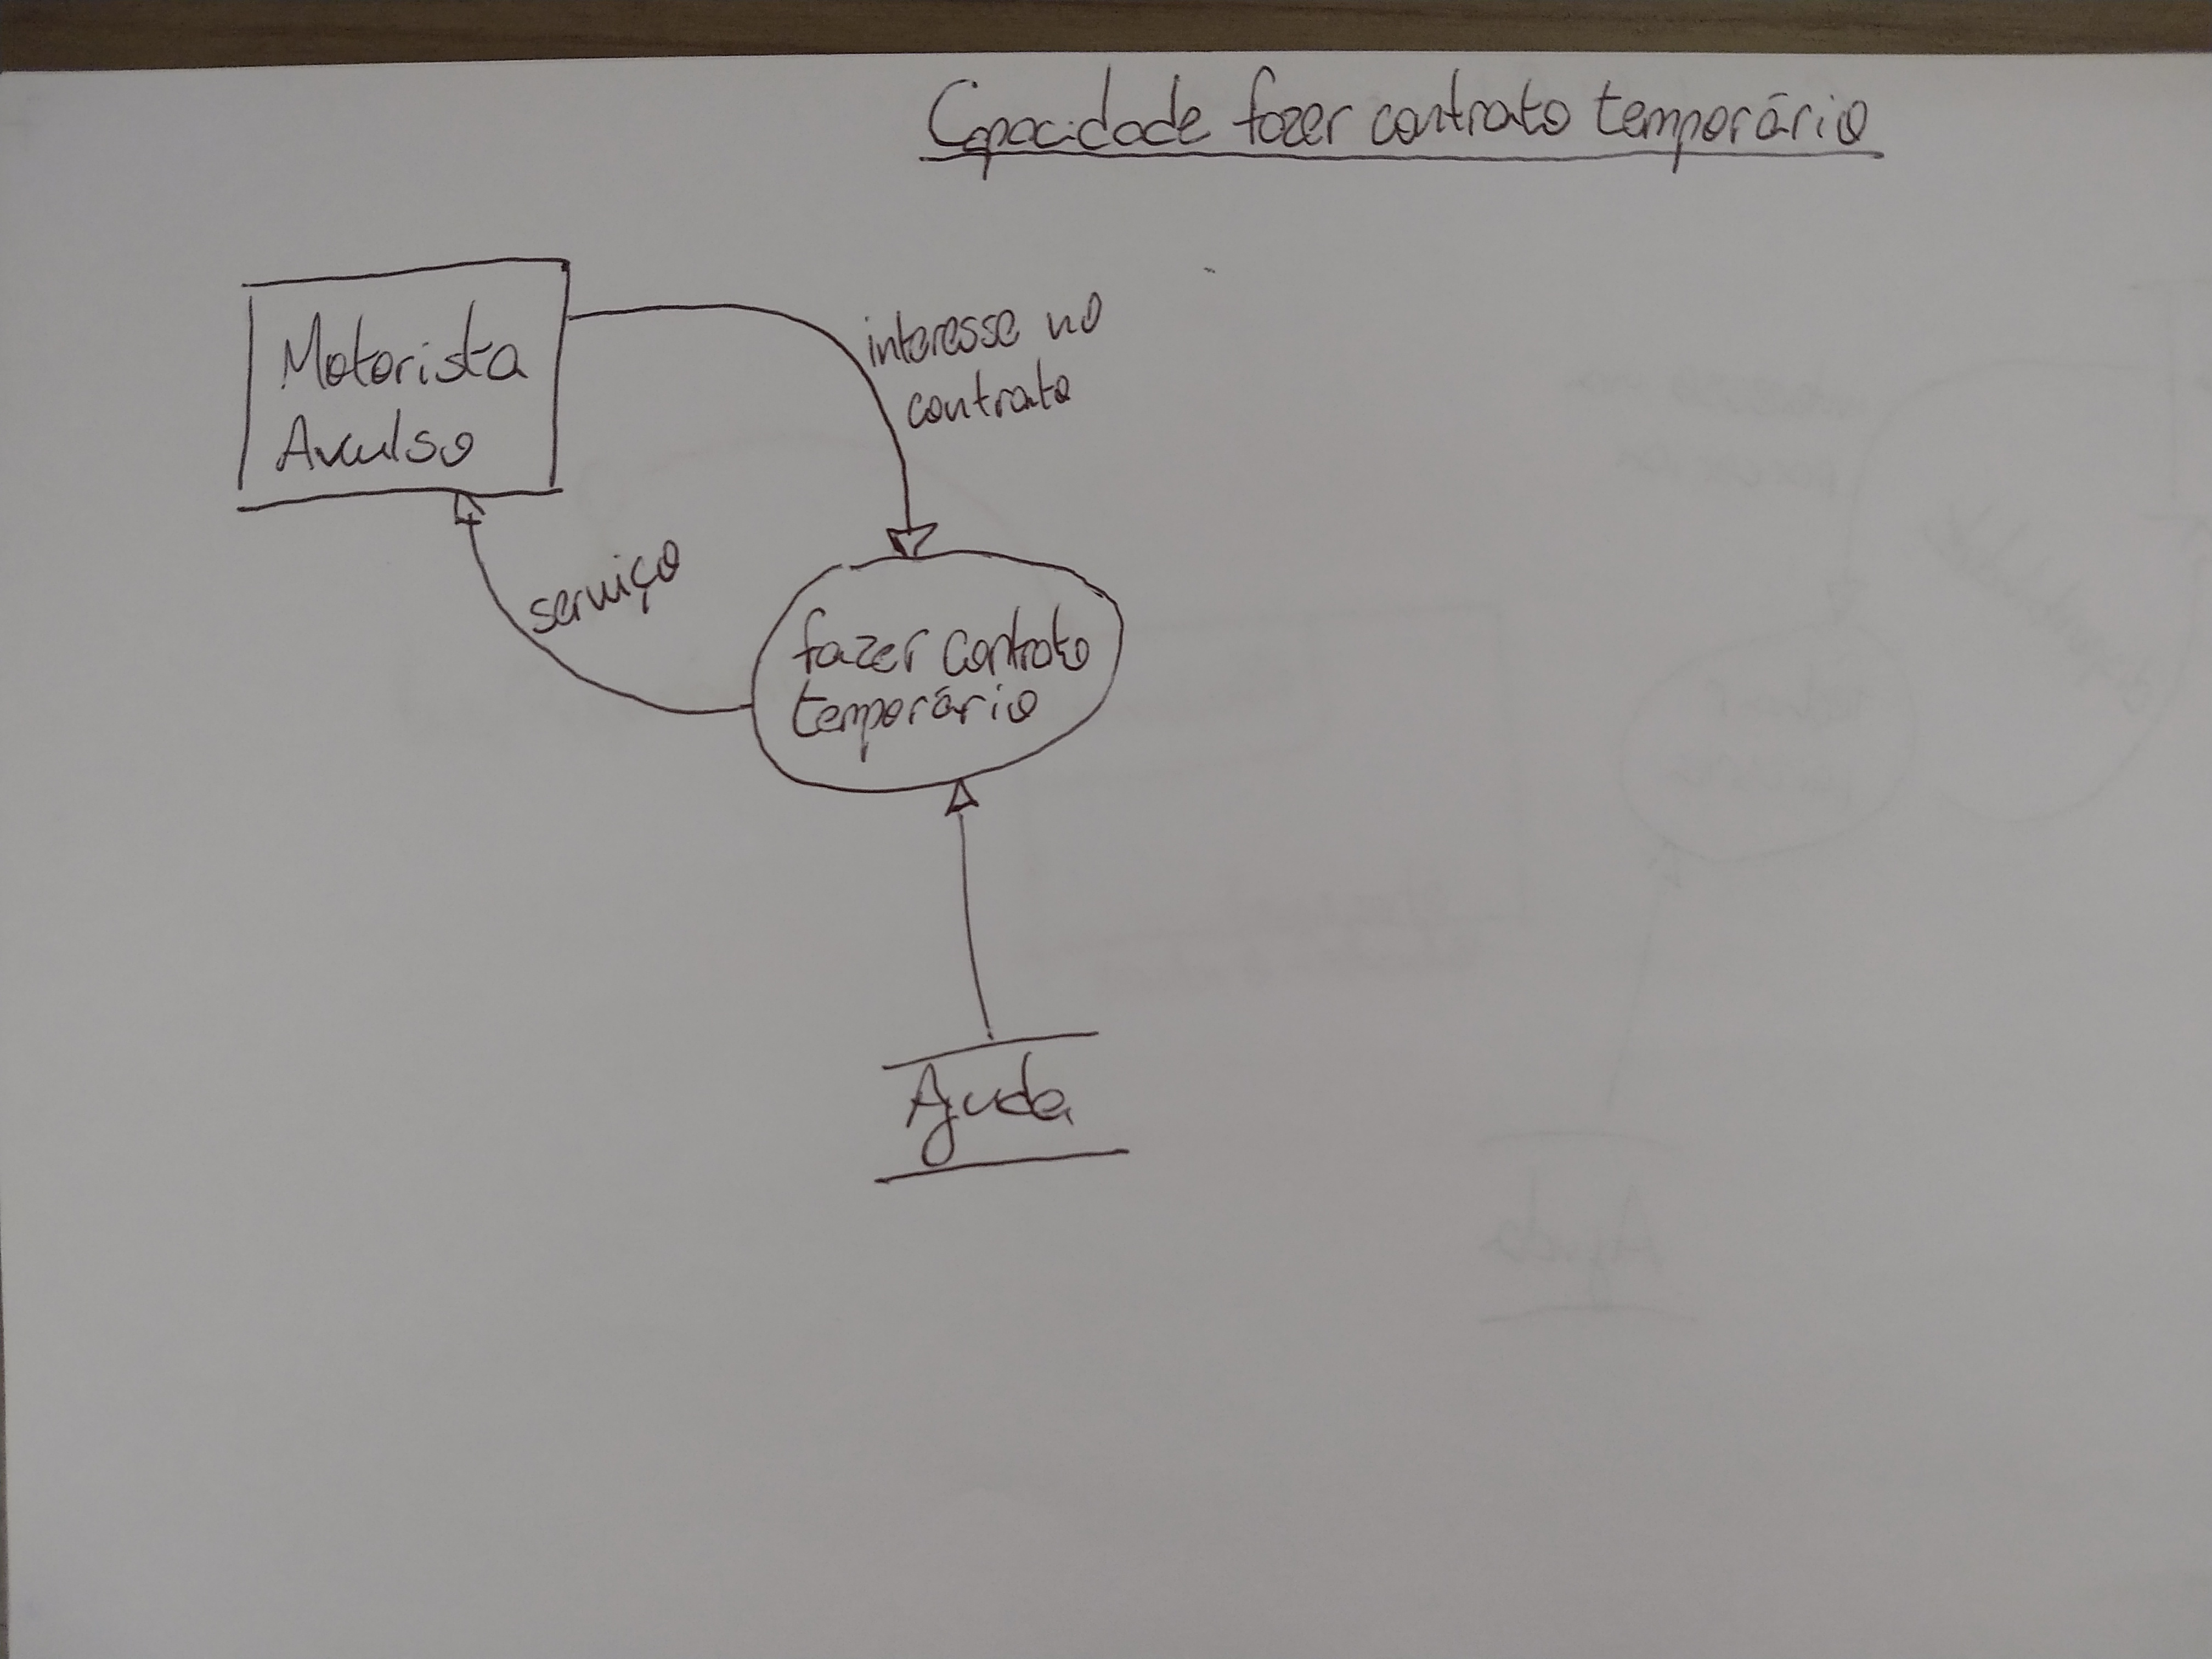 Capacidade fazer contrato temporário
Motorista
Avulso
interesse no
contrato
serviço
fazer contrato
temporário
Ajuda